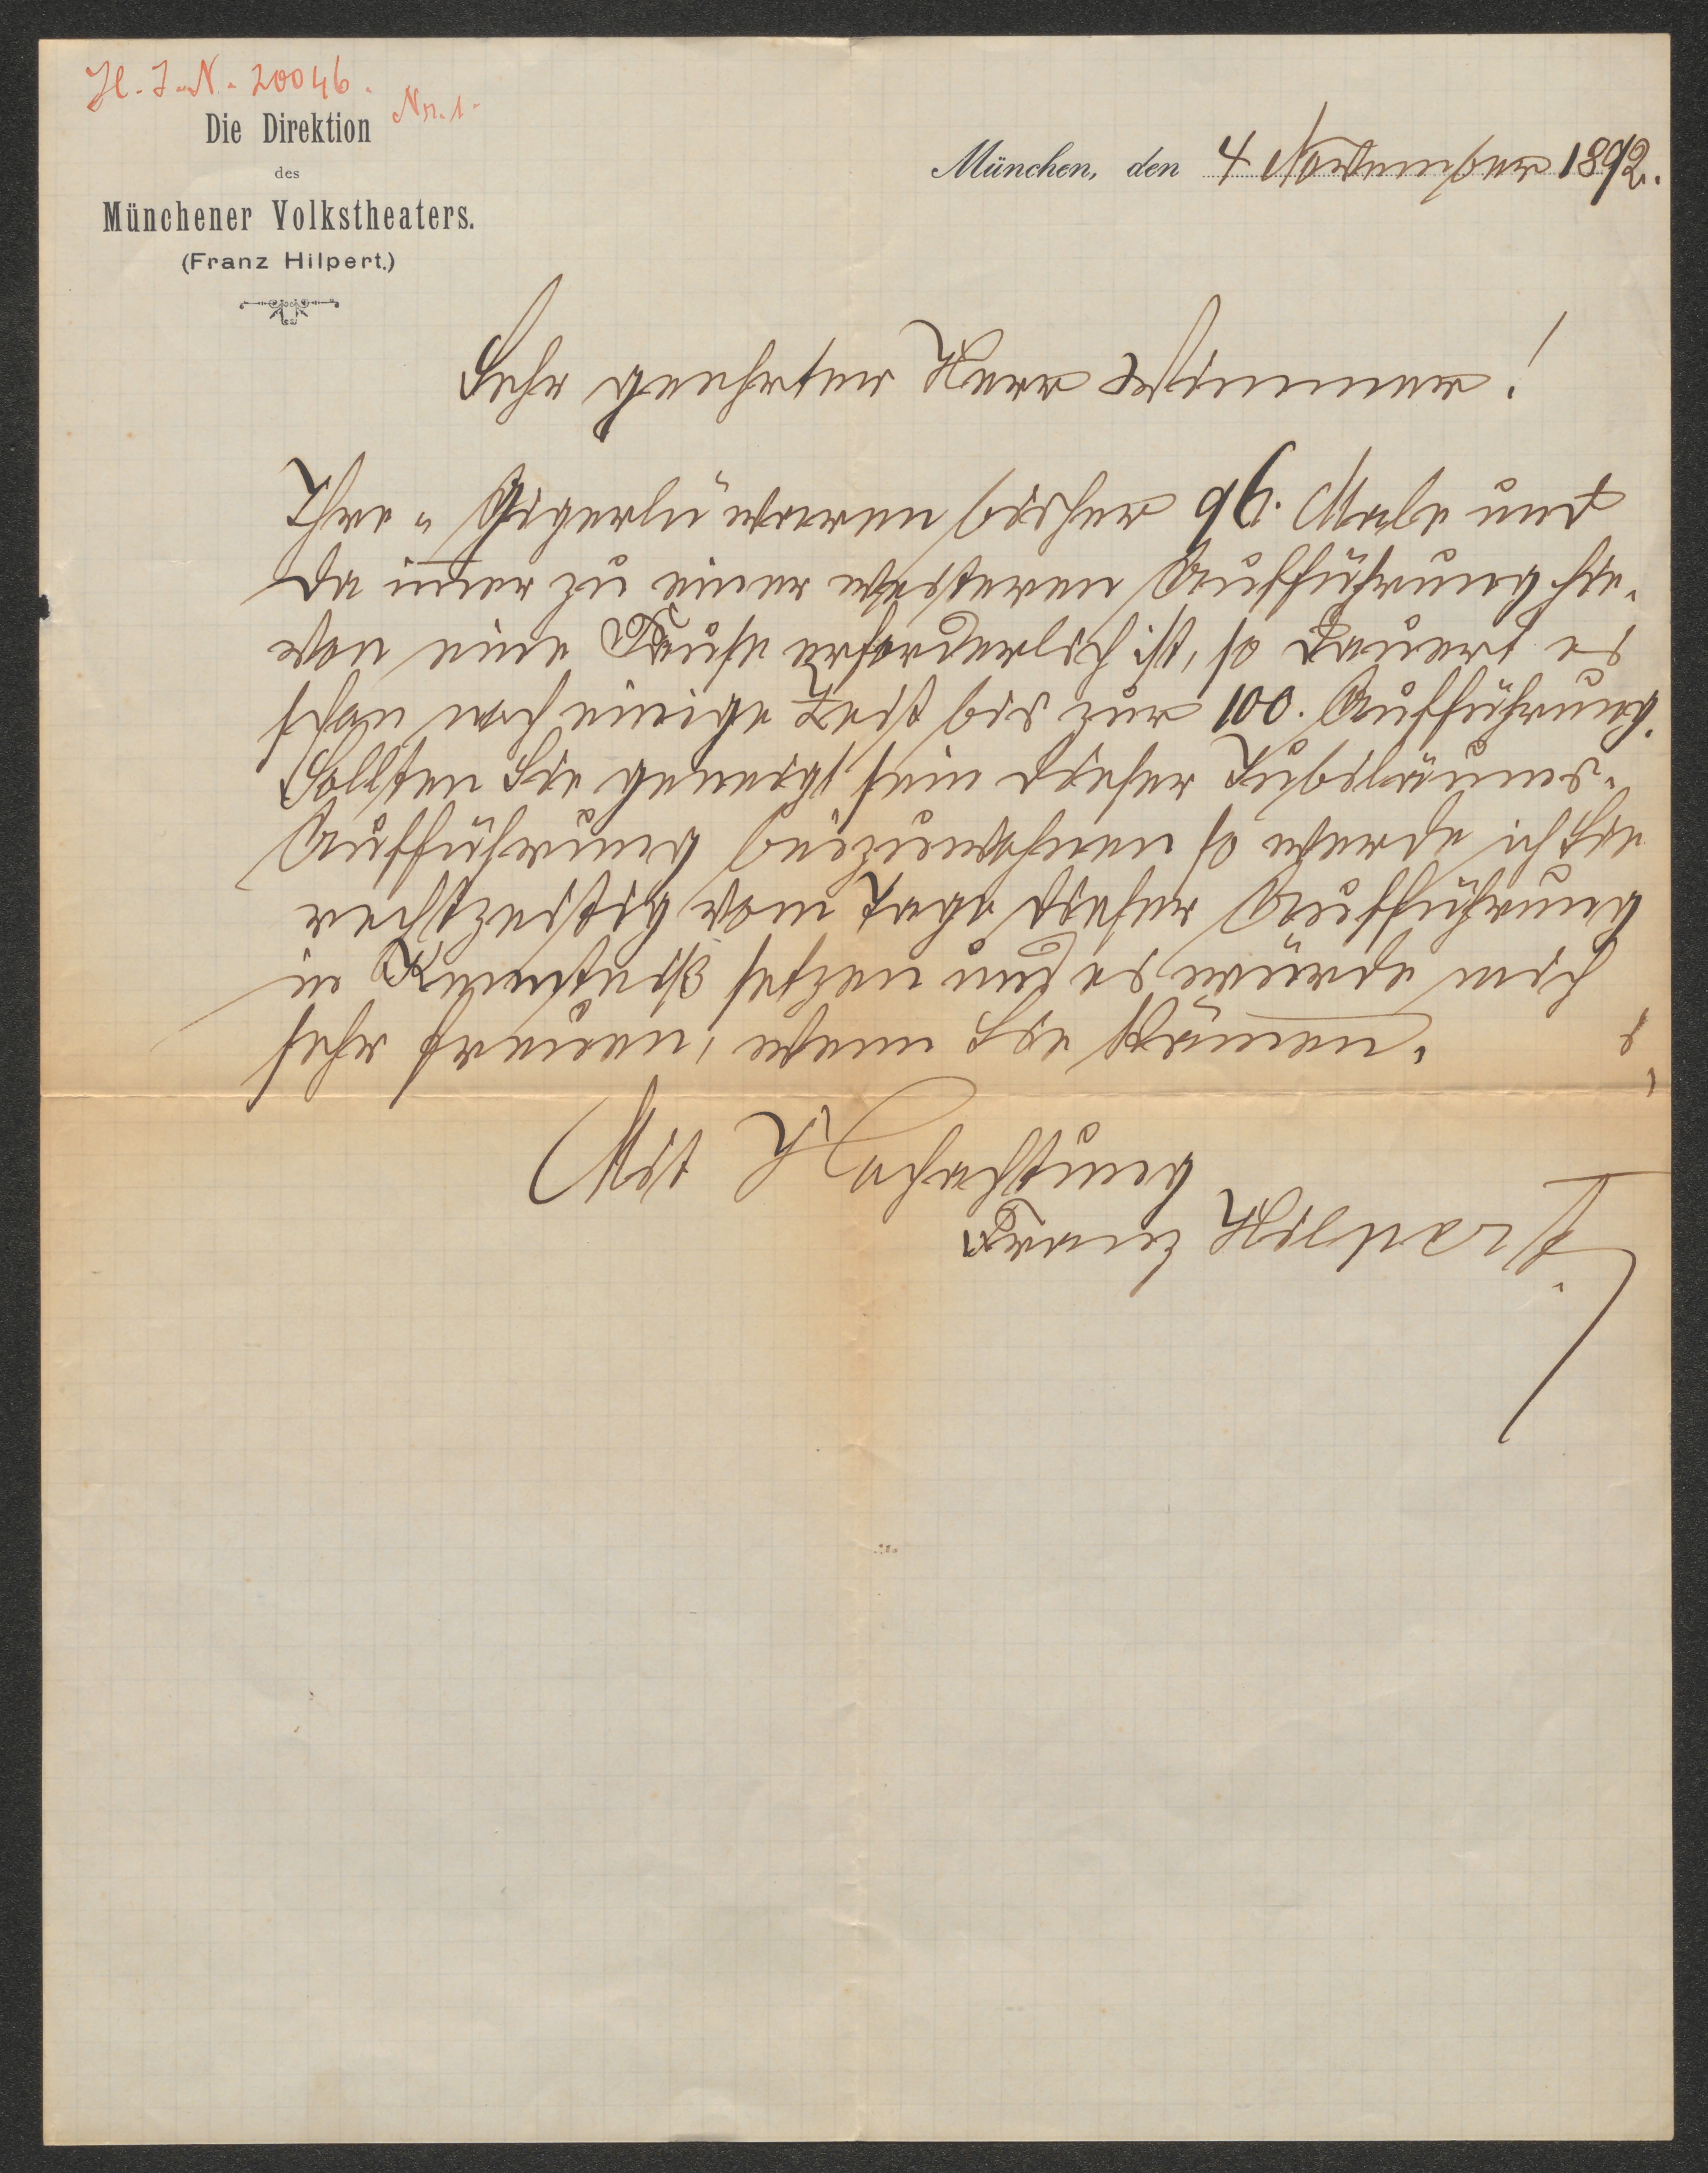 H. I. N. 20046.
Nr. 1.
Die Direktion
des
Münchener Volkstheaters.
(Franz Hilpert.)
München, den 4 November 1892.
Sehr geehrter Herr Wimmer!
Ihre "Gigerln" waren bisher 96. Male und
da immer zu einer weiteren Aufführung hie-
von eine Pause erforderlich ist, so dauert es
schon noch einige Zeit bis zur 100. Aufführung.
Sollten Sie geneigt sein dieser Jubiläums-
Aufführung beizuwohnen so werde ich Sie
rechtzeitig vom Tage dieser Aufführung
in Kenntniß setzen und es würde mich
sehr freuen, wenn Sie kämen.
Mit Hochachtung
Franz